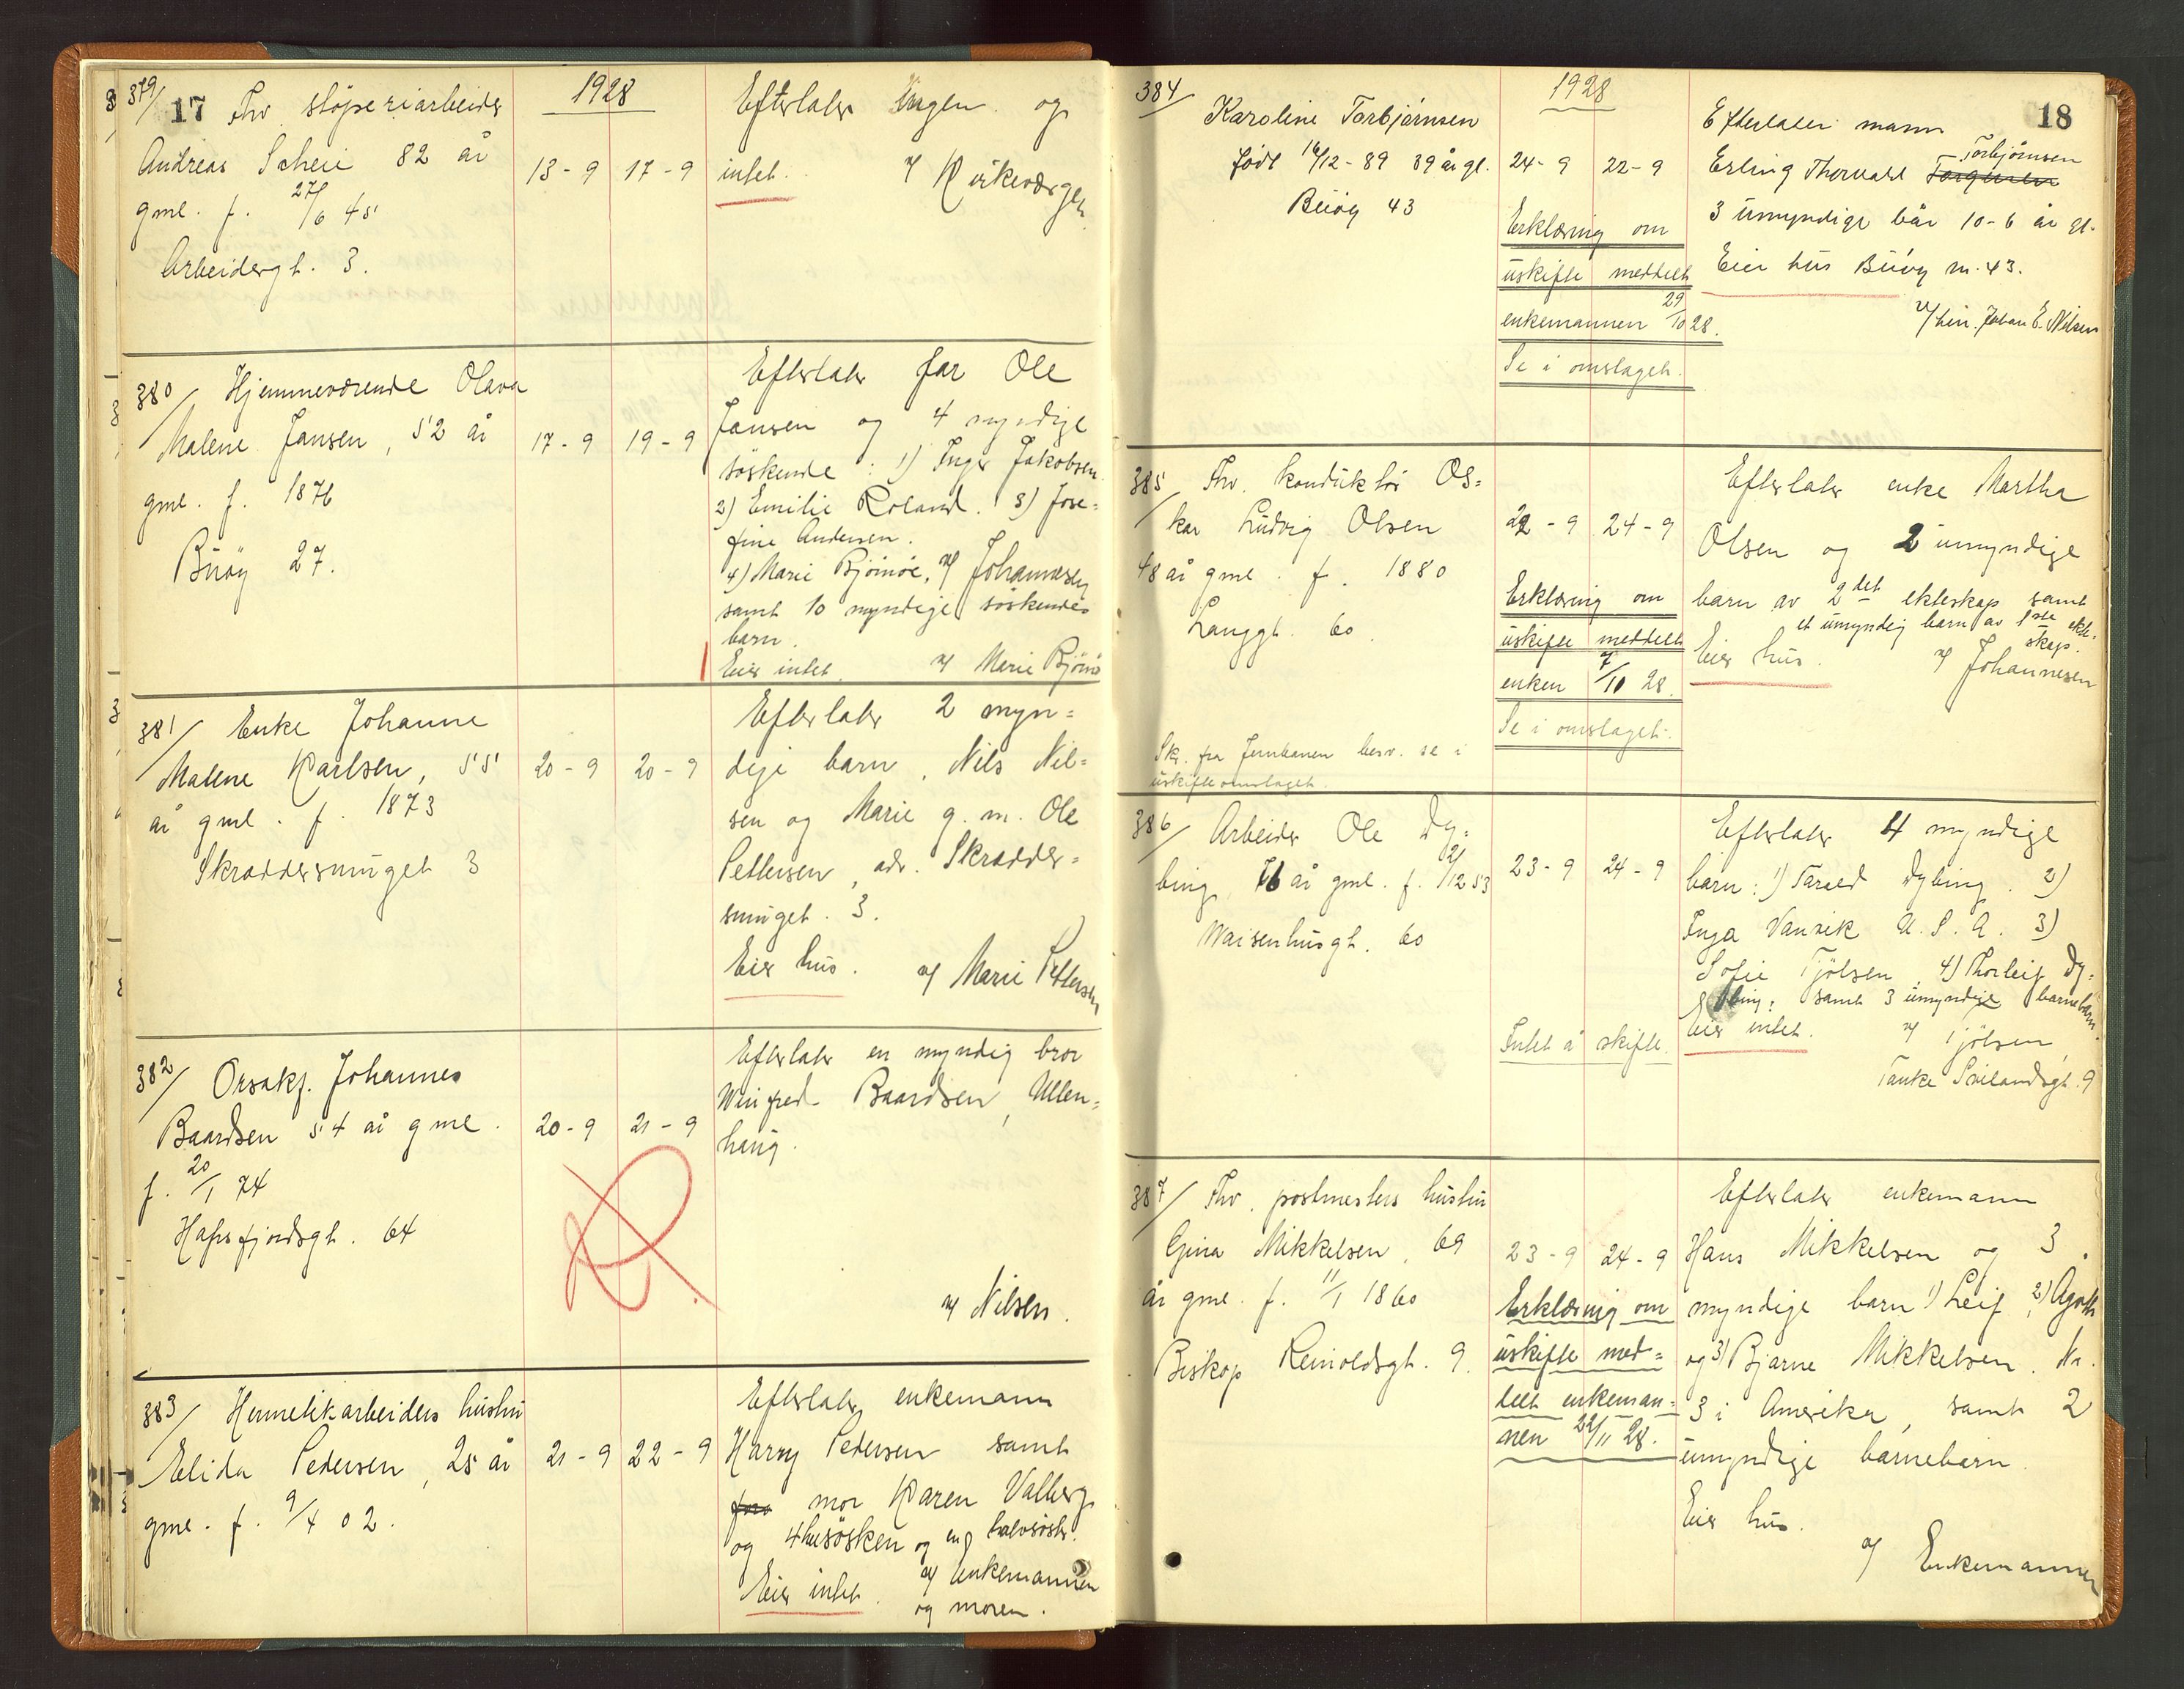 17
379/ Fhv. støperiarbeider
Andreas Scheie 82 år
gml. f. 27/6 45
Arbeidergt. 3.
1928
13-9 17-9
Efterlater Ingen og
intet.
v/ Kirkeværgen
380/ Hjemmeværende Olava
Malene Jansen, 52 år
gml. f. 1876
Buøy 27.
17-9 19-9
Efterlater far Ole
Jansen og 4 myndige
söskende: 1) Inger Jakobsen
2) Emilie Roland. 3) Jose=
fine Andersen.
4) Marie Bjørnøe, v/ Johannesen
samt 10 myndige söskende=
barn.
Eier intet. v/ Marie Bjørnø
381/ Enke Johanne
Malene Karlsen, 55
år gml. f. 1873
Skreddersmuget 3
20-9 20-9
Efterlater 2 myn=
dige barn, Nils Nil=
sen og Marie g. m. Ole
Pettersen, adr. Skredder=
smuget. 3.
Eier hus. v/ Marie Pettersen
382/ Orsakf. Johannes
Baardsen 54 år gml.
f. 20/1 74
Hafrsfjordsgt. 64
20-9 21-9
Efterlater en myndig bror
Winfred Baardsen, Ullen=
haug.
v/ Nilsen.
383/ Hermetikarbeiders hustru
Elida Pedersen, 25 år
gml. f. 9/4 02.
21-9 22-9
Efterlater enkemann
Harry Pedersen samt
mor Karen Valberg
og 4 helsösken og en halvsöster.
Eier intet. v/ enkemannen
og moren.
18
384/
Karoline Torbjørnsen
født 16/12-89 39 år gl.
Buøy 43
1928
24-9 22-9
Erklæring om
uskifte meddelt
enkemannen 29/10 28.
Se i omslaget.
Efterlater mann
Torbjørnsen
Erling Thorvald
3 umyndige bår 10-6 år gl.
Eier hus Buøy nr. 43.
v/ Johan E. Nilsen
385/ Fhv. konduktör Os=
kar Ludvig Olsen
48 år gml. f. 1880
Langgt. 60.
Skr. fra Jernbanen besv. se i
uskifteomslaget.
22-9 24-9
Erklæring om
uskifte meddelt
enken 7/10 28.
Se i omslaget.
Efterlater enke Martha
Olsen og 2 umyndige
barn av 2det ekteskap samt
et umyndig barn av 1ste ekte=
skap.
Eier hus. v/ Johannesen
386/ Arbeider Ole Dy=
bing, 76 år gml. f. 21/12 53
Waisenhusgt. 60
23-9 24-9
Intet å skifte.
Efterlater 4 myndige
barn: 1) Tarald Dybing. 2)
Inga Vanvik U.S.A. 3)
Sofie Tjölsen, 4) Thorleif Dy=
bing: samt 3 umyndige barnebarn
Eier intet. v/ Tjölsen,
Tanke Svilandsgt. 9
387/ Fhv. postmesters hustru
Gina Mikkelsen, 69
år gml. f. 11/1 1860
Biskop Reinoldsgt. 9.
23-9 24-9
Erklæring om
uskifte med=
delt enkeman=
nen 22/11 28.
Efterlater enkemann
Hans Mikkelsen og 3
myndige barn 1) Leif, 2) Agath
og 3) Bjarne Mikkelsen. Nr.
3 i Amerika, samt 2
umyndige barnebarn.
Eier hus.
v/ Enkemannen